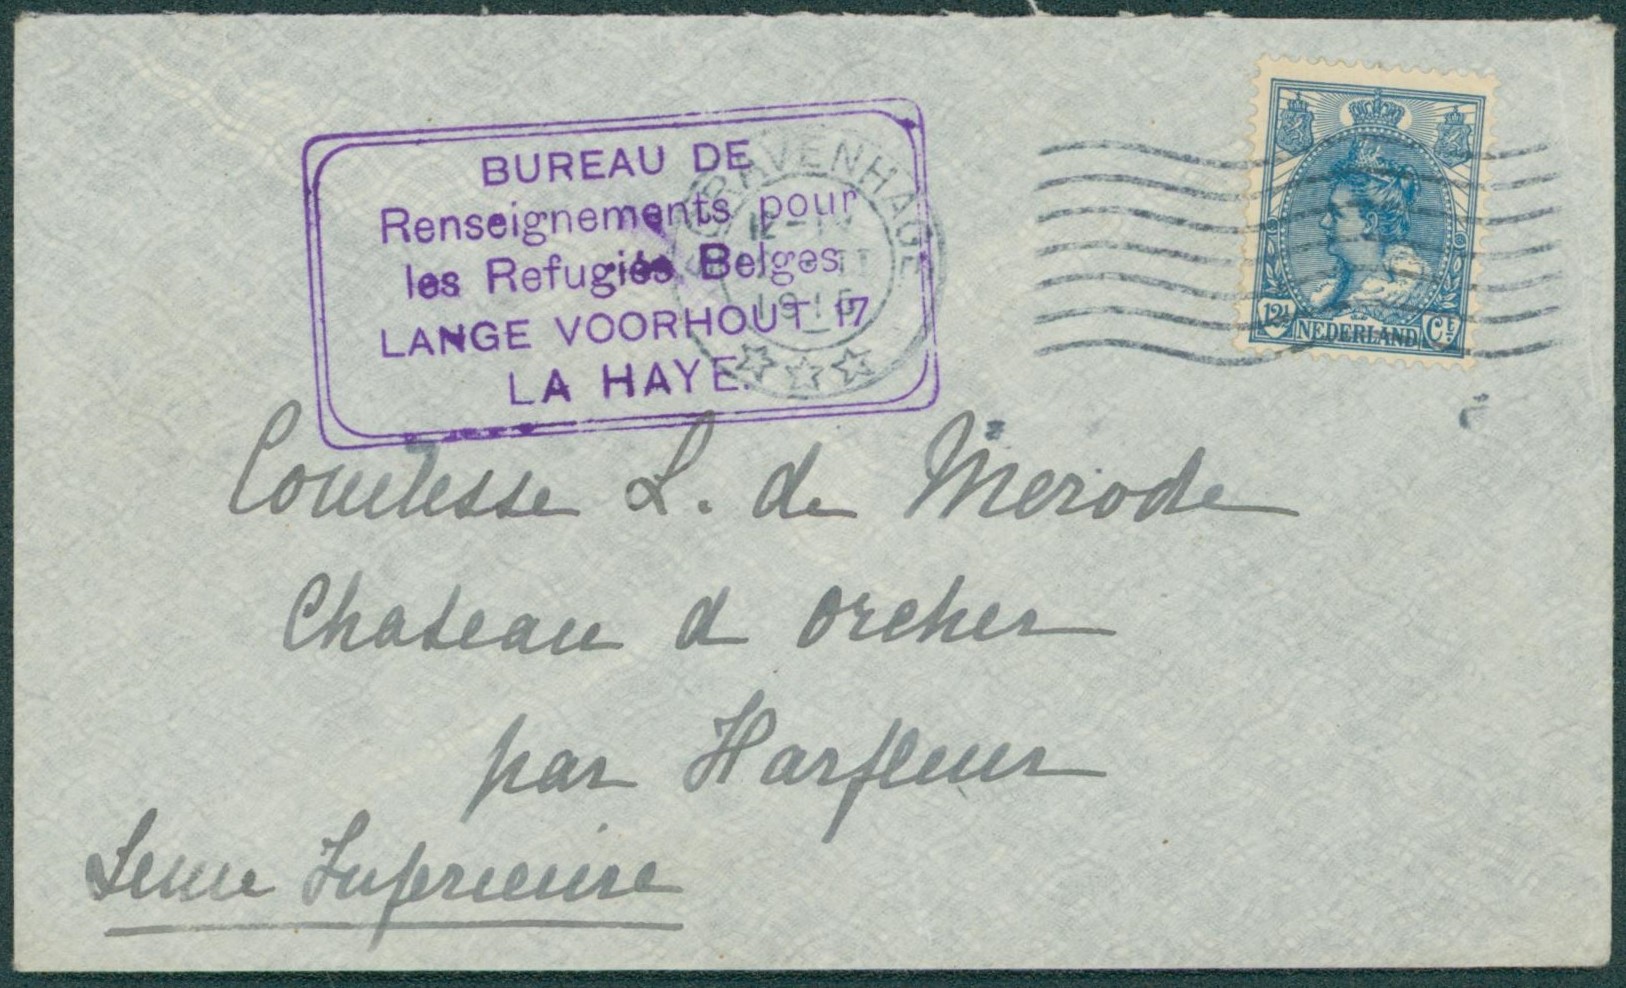 BUREAU DE
Renseignements pour
les Refugiés Belges
LANGE VOORHOUT 17
LA HAYE.
'S-GRAVENHAGE
12-1V
1915
12½ NEDERLAND Ct
Comtesse L. de Merode
Chateau d Orcher
par Harfleur
Seine Inferieure